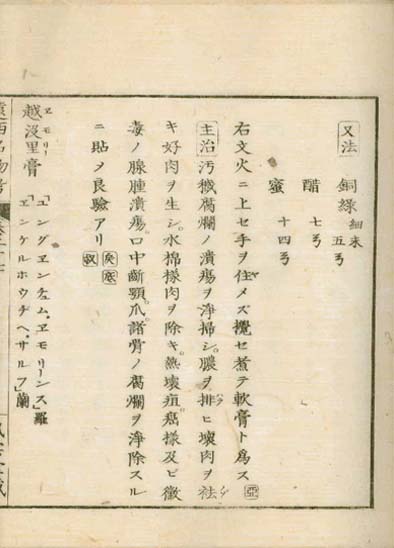 又法
銅緑 細末 五ヲ
醋 七ヲ
蜜 十四ヲ
右文火ニ上セ手ヲ住メズ攪セ煮テ軟膏ト為ス 亞
主治 汚穢腐爛ノ潰瘍ヲ浄掃シ。膿ヲ排ヒ壊肉ヲ祛
キ好肉ヲ生シ。水綿様肉ヲ除キ。熱壊疽。癌様及ヒ黴
毒ノ腺腫潰瘍。口中齗頸。爪。諸骨ノ腐爛ヲ浄除スル
ニ貼ヲ良験アリ
越没里膏 ヱモリー
「ユングヱンチュム、ヱモリーンス」羅
「ヱンケルホウヂヘ、サルフ」蘭
遠西名物考